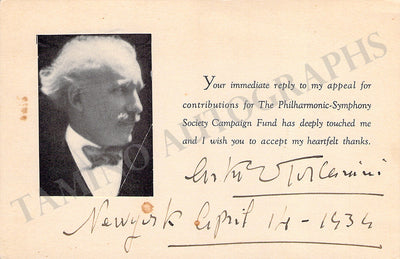 Your immediate reply to my appeal for
contributions for The Philharmonic-Symphony
Society Campaign Fund has deeply touched me
and I wish you to accept my heartfelt thanks.
Arturo Toscanini
Newyork April 14-1934
TAMINO AUTOGRAPHS